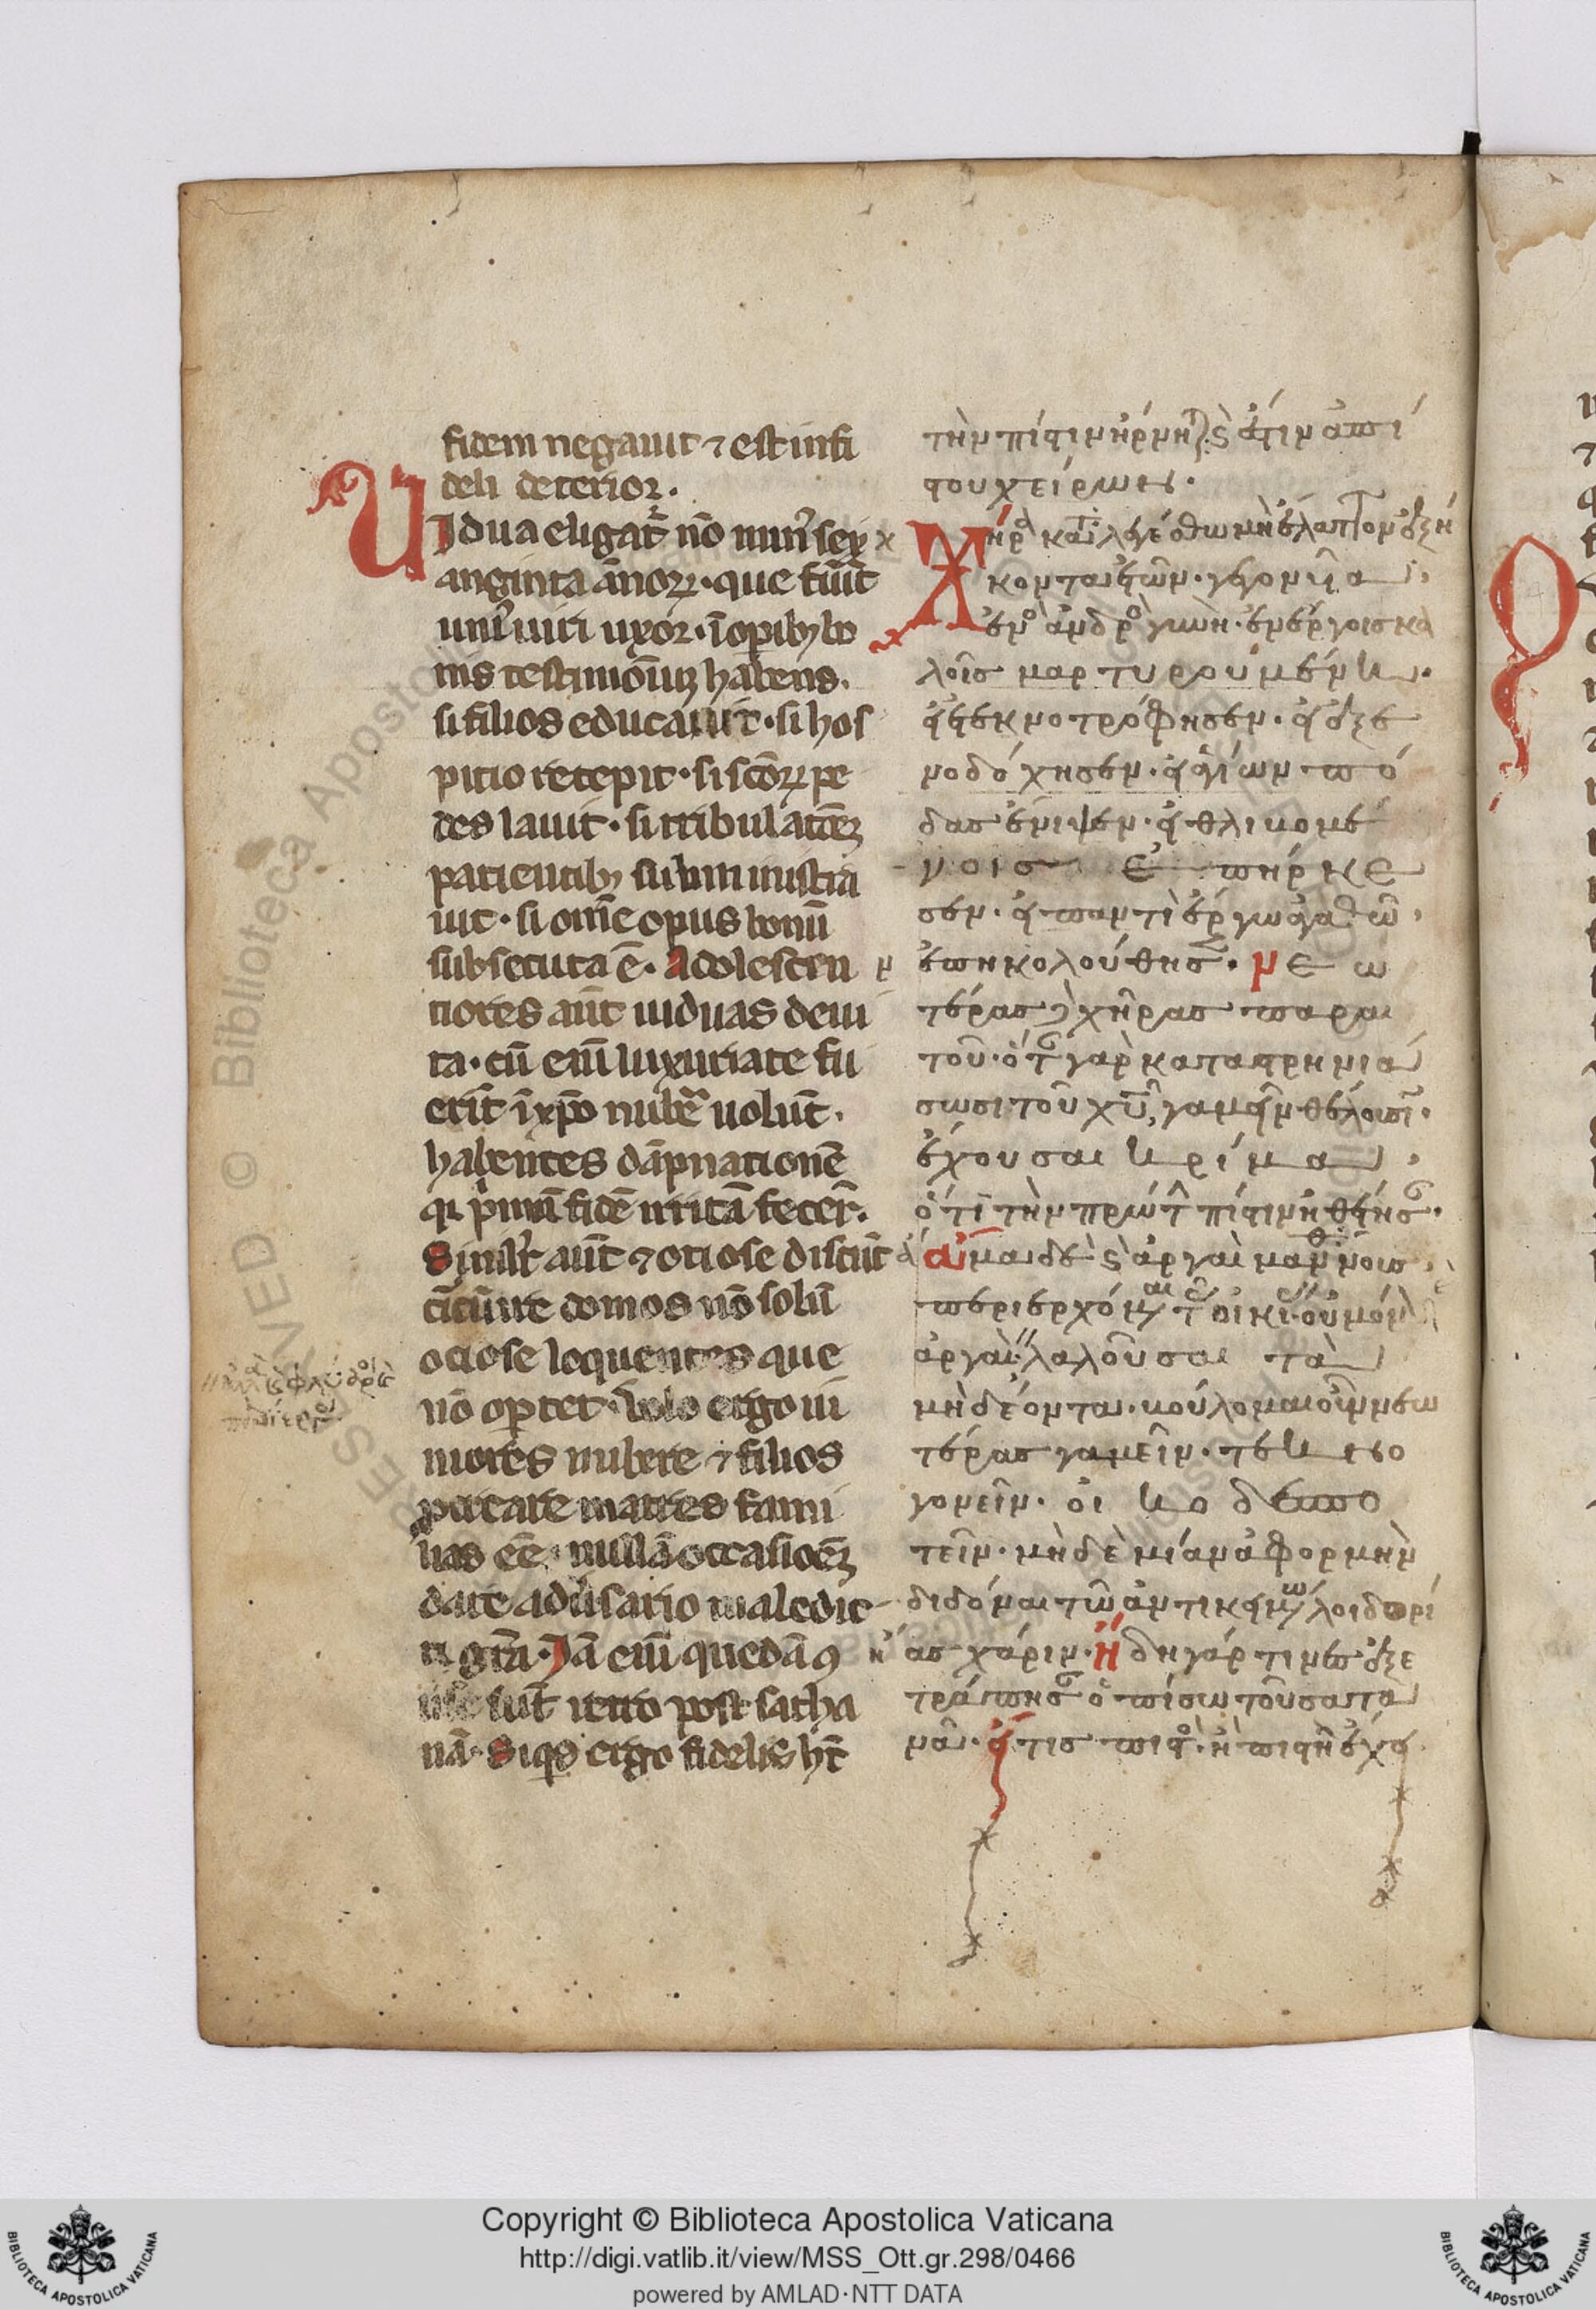 fidem negauit ⁊ est infi
deli deterior.
Uidua eligat̄ nō min᷎ sex
aginta ānoꝝ· que fuīt
uni᷎ uiri uxor· ī opibꝫ bo
nis testimoīuꝫ habens.
si filios educauit· si hos
pitio recepit· si scōꝝ pe
des lauit· si tribulatōeꝫ
patientibꝫ subministra
uit· si om̄e opus bonū
subsecuta ē. Adolescen
tiores aūt uiduas deui
ta· cū eni᷎ luxuriate fu
erīt ī xp̄o nub̄e uolūt.
habentes dāpnationē
qꝛ p̄mā fidē irritā fecer̄.
Simil᷎r aūt ⁊ otiose discūt
circūire domos nō solū
otiose loquentes que
nō oportet· Uolo ergo iu
niores nubere ⁊ filios
procreare matres fami
lias eē· nullā occasioēꝫ
dare adūsario maledic
ti gr̄a. Jā eni᷎ quedā 9
uerse sūt retro post satha
nā. Siqͥs ergo fidelis hт̄
τὴν πίστιν ἤρνηται, καὶ ἔστιν ἀπί
στου χείρων.
Χήρα καταλεγέσθω μὴ ἔλαττον ἐξή
κοντα ἐτῶν· γεγονυῖα
ἑνὸς ἀνδρὸς γυνή· ἐν ἔργοις κα
λοῖς μαρτυρουμένη.
εἰ ἐτεκνοτρόφησεν· εἰ ἐξε
νοδόχησεν· εἰ ἁγίων πό
δας ἔνιψεν· εἰ θλιβομέ
νοις ἐπήρκε
σεν· εἰ παντὶ ἔργω ἀγαθῶ
ἐπηκολούθησε. νεω
τέρας δὲ χήρας παραι
τοῦ· ὅταν γὰρ καταστρηνιά
σωσι τοῦ χ̅υ̅, γαμεῖν θέλουσι.
ἔχουσαι κρίμα
ὅτι τὴν πρώτην πίστιν ἠθέτησαν.
ἅμα δὲ καὶ ἀργαὶ μανθάνουσι
περιερχόμεναι τὰς οἰκίας· οὐ μόνον δὲ
ἀργαὶ λαλοῦσαι τὰ
μὴ δέοντα. βούλομαι οὖν νεω
τέρας γαμεῖν· τεκνο
γονεῖν· οἰκοδεσπο
τεῖν· μὴδὲ μίαν ἀφορμὴν
διδόναι τῶ ἀντικειμένω λοιδορί
ας χάριν. ἤδη γάρ τινες ἐξε
τράπησαν ὀπίσω τοῦ σατα
νᾶ. εἴ τις πιστὸς ἢ πιστὴ ἔχει
Copyright © Biblioteca Apostolica Vaticana
http://digi.vatlib.it/view/MSS_Ott.gr.298/0466
powered by AMLAD·NTT DATA
BIBLIOTECA APOSTOLICA VATICANA
BIBLIOTECA APOSTOLICA VATICANA